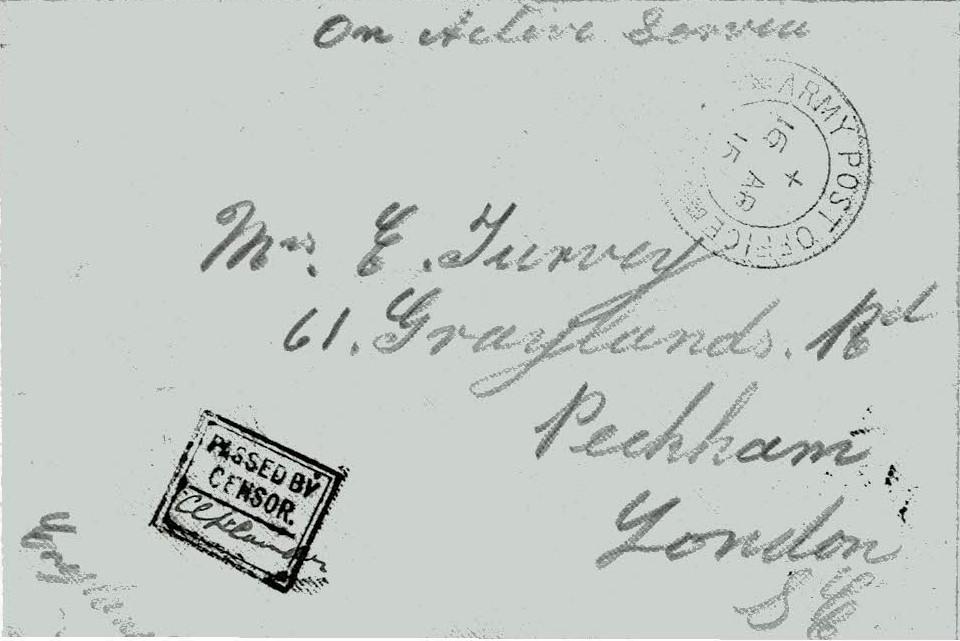 On Active Service
ARMY POST OFFICE
X
16 AP
15
Mrs. E. Turvey
61. Graylands. Rd
Peckham
London
S E
PASSED BY
CENSOR.
England